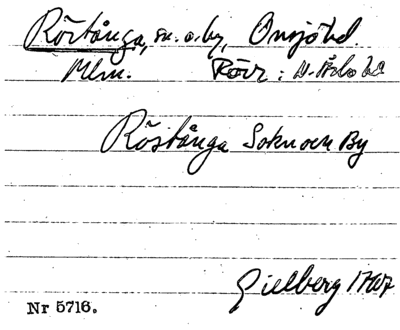 Röstånga, sn. o. by, Onsjö hd.
Mlm. Rövr:
Röstånga Sokn och By
Gielberg 17
Nr 5716.